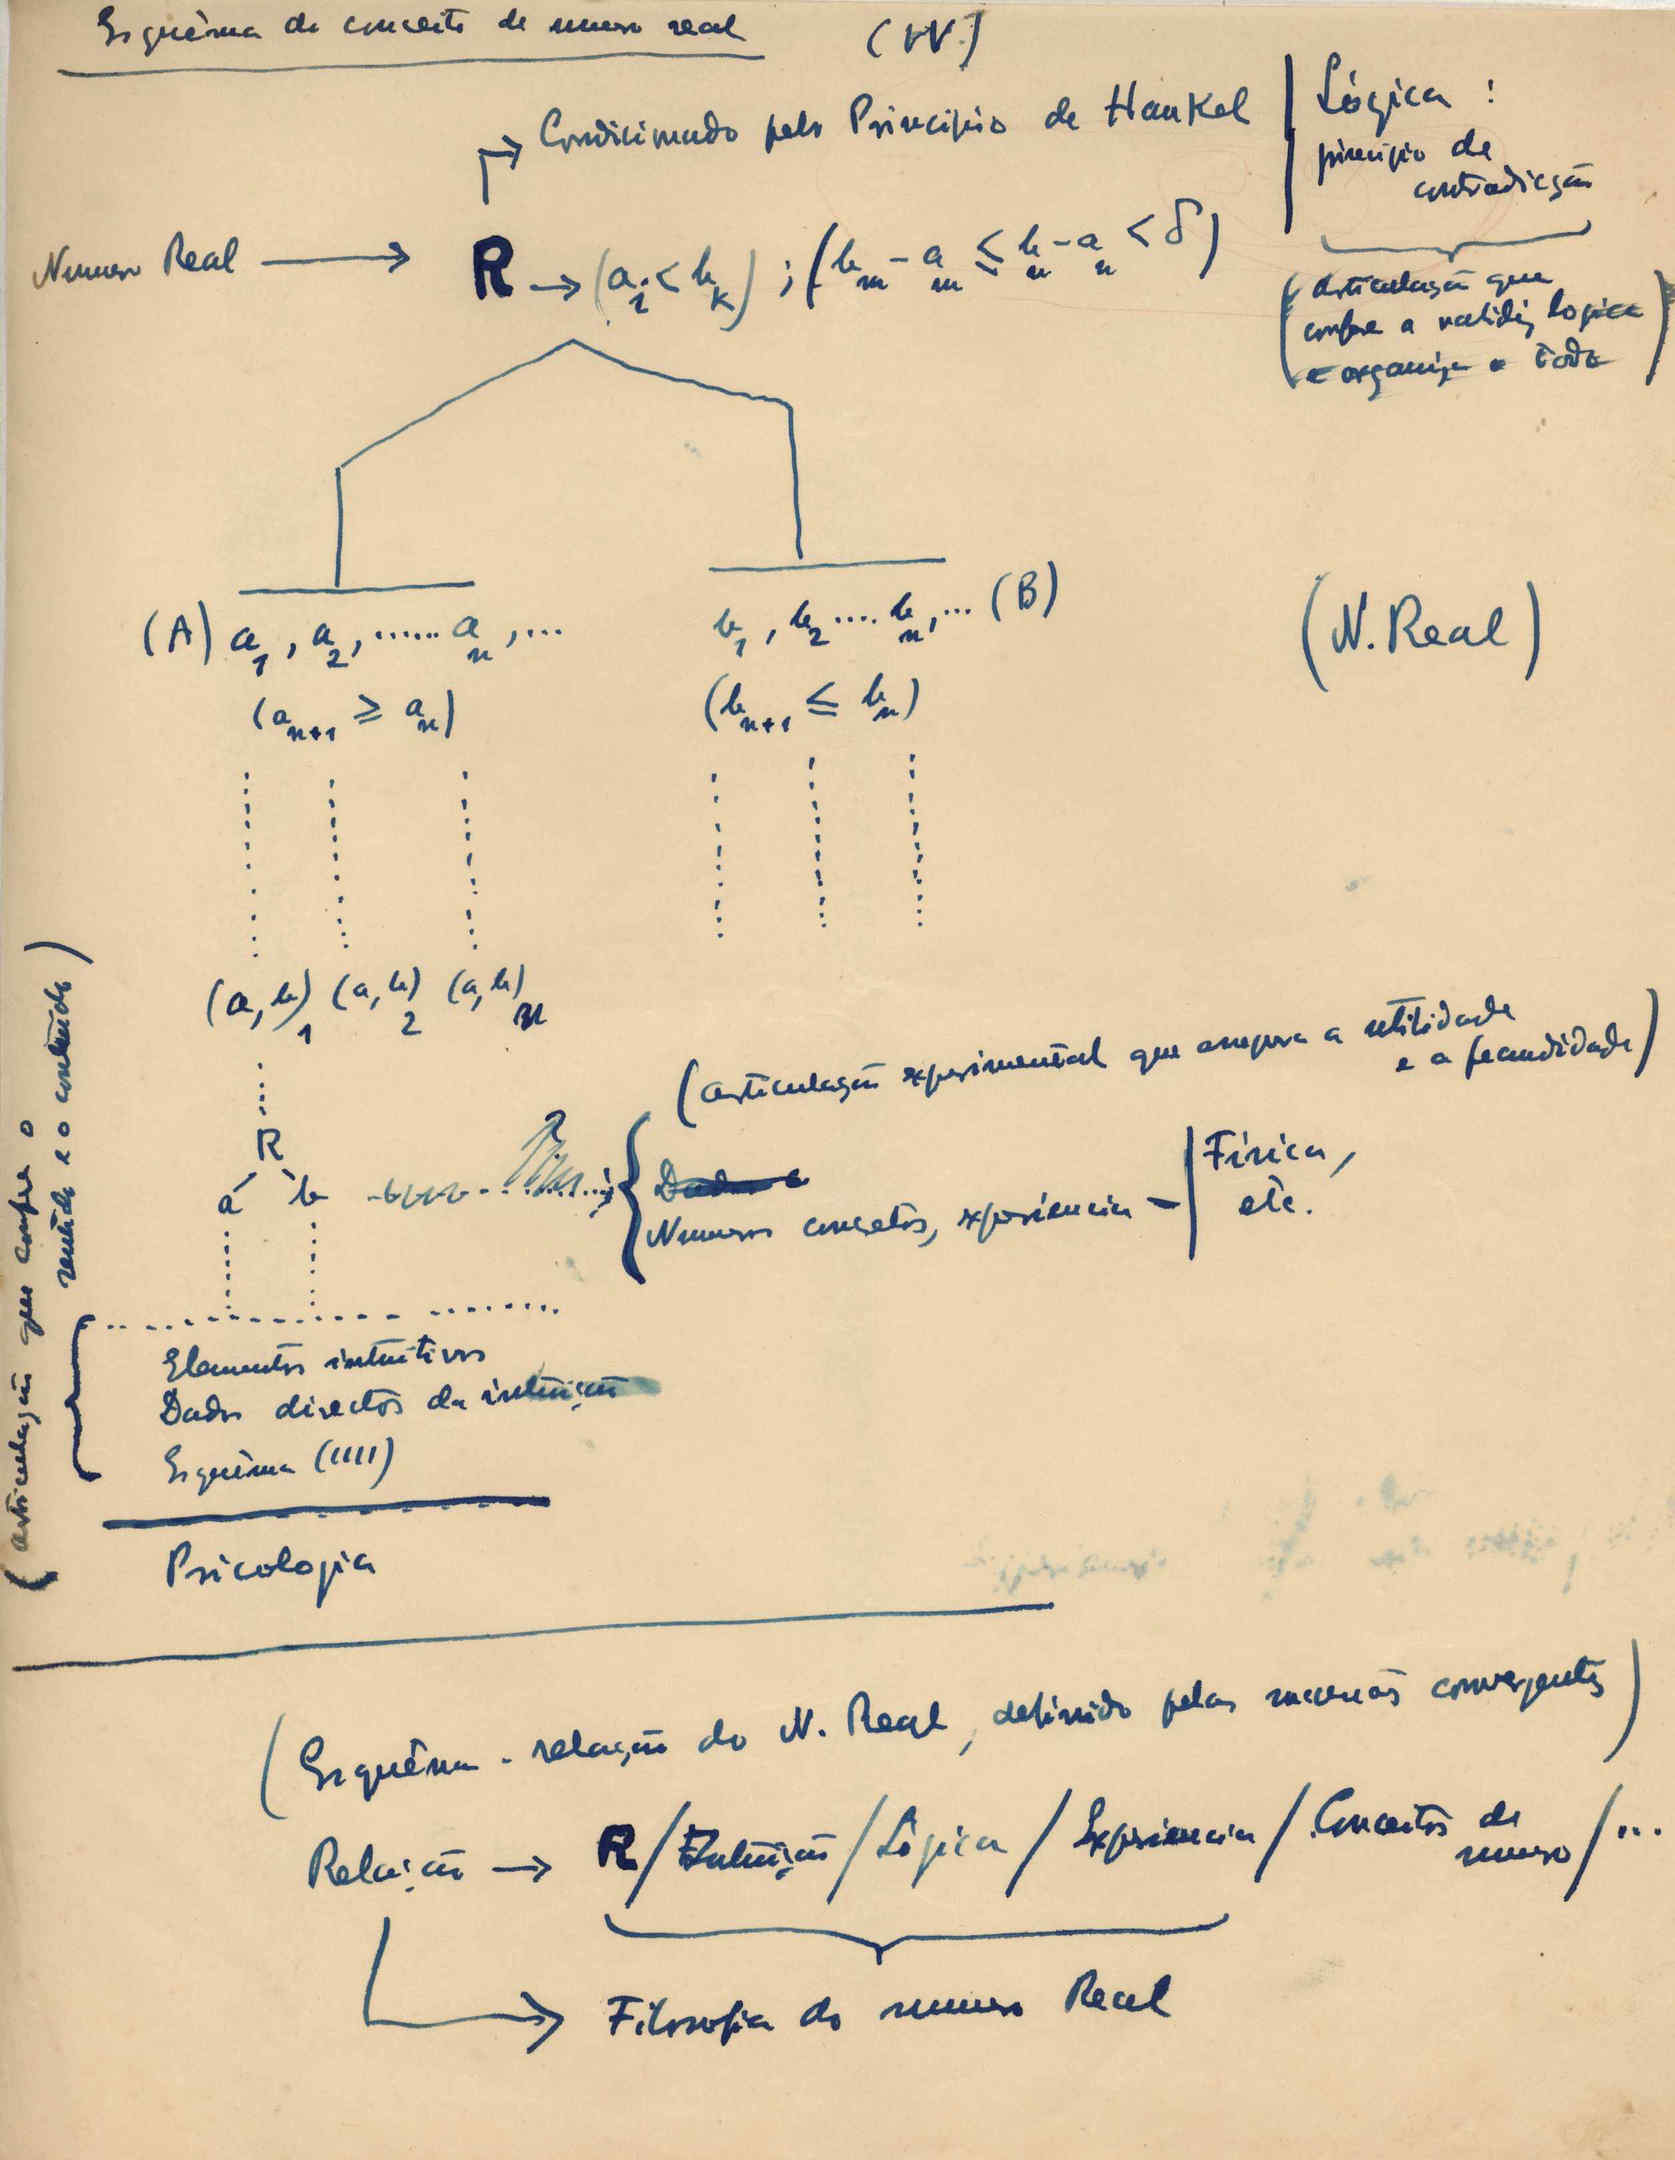 Esquêma do conceito de numero real (IV.)
Condicionado pelo Principio de Hankel
Lógica :
principio de
contradicção
Numero Real → R → (a_i < b_k) ; (b_m - a_m ≤ b_n - a_n < δ)
(articulação que
confere a validez logica
e organiza o todo)
(A) a_1, a_2, ...... a_n, ...
b_1, b_2 .... b_n, ... (B)
(N. Real)
(a_{n+1} ≥ a_n)
(b_{n+1} ≤ b_n)
(a, b)_1 (a, b)_2 (a, b)_n
(articulação experimental que assegura a utilidade
e a fecundidade)
R
a b
Numeros concretos, experiencia – Física,
etc.
(articulação que confere o
sentido e o conteúdo)
Elementos intuitivos
Dados directos da intuição
Esquêma (IIII)
Psicologia
(Esquêma - relação do N. Real, definido pelas sucessões convergentes)
Relação → R / Intuição / Lógica / Experiencia / Conceitos de
numero / ...
Filosofia do numero Real